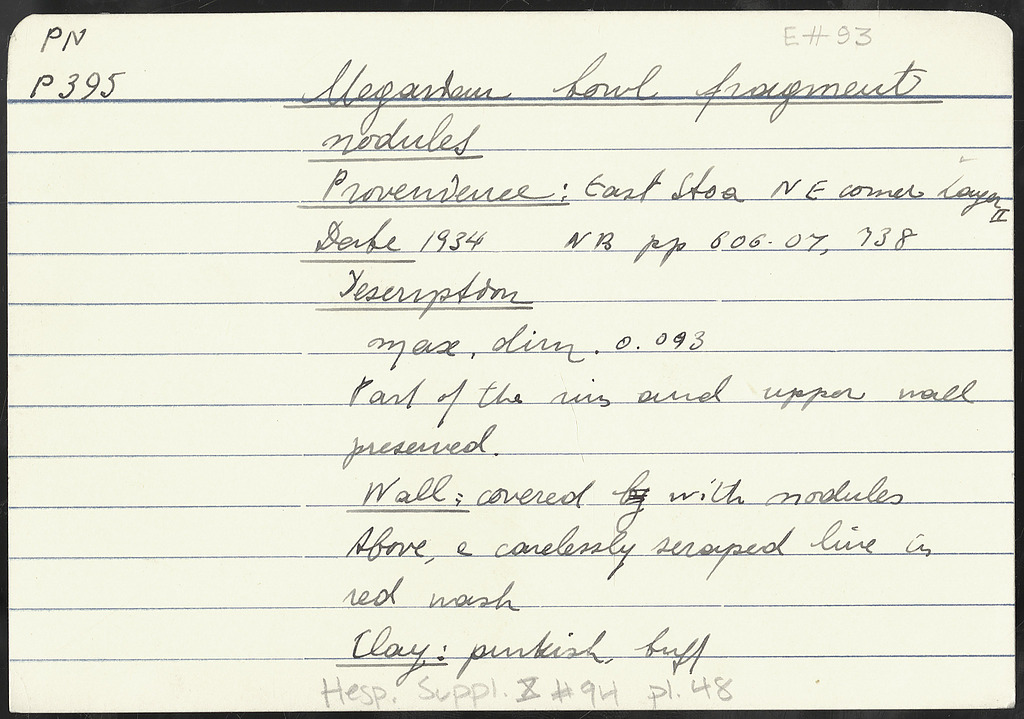 PN
E#93
P395
Megarian bowl fragment
nodules
Provenience: East Stoa NE corner Layer II
Date 1934 NB pp 606-07, 738
Description
max. dim. 0.093
Part of the rim and upper wall
preserved.
Wall: covered by with nodules
Above, a carelessly scraped line in
red wash
Clay: pinkish buff
Hesp. Suppl. X #94 pl. 48